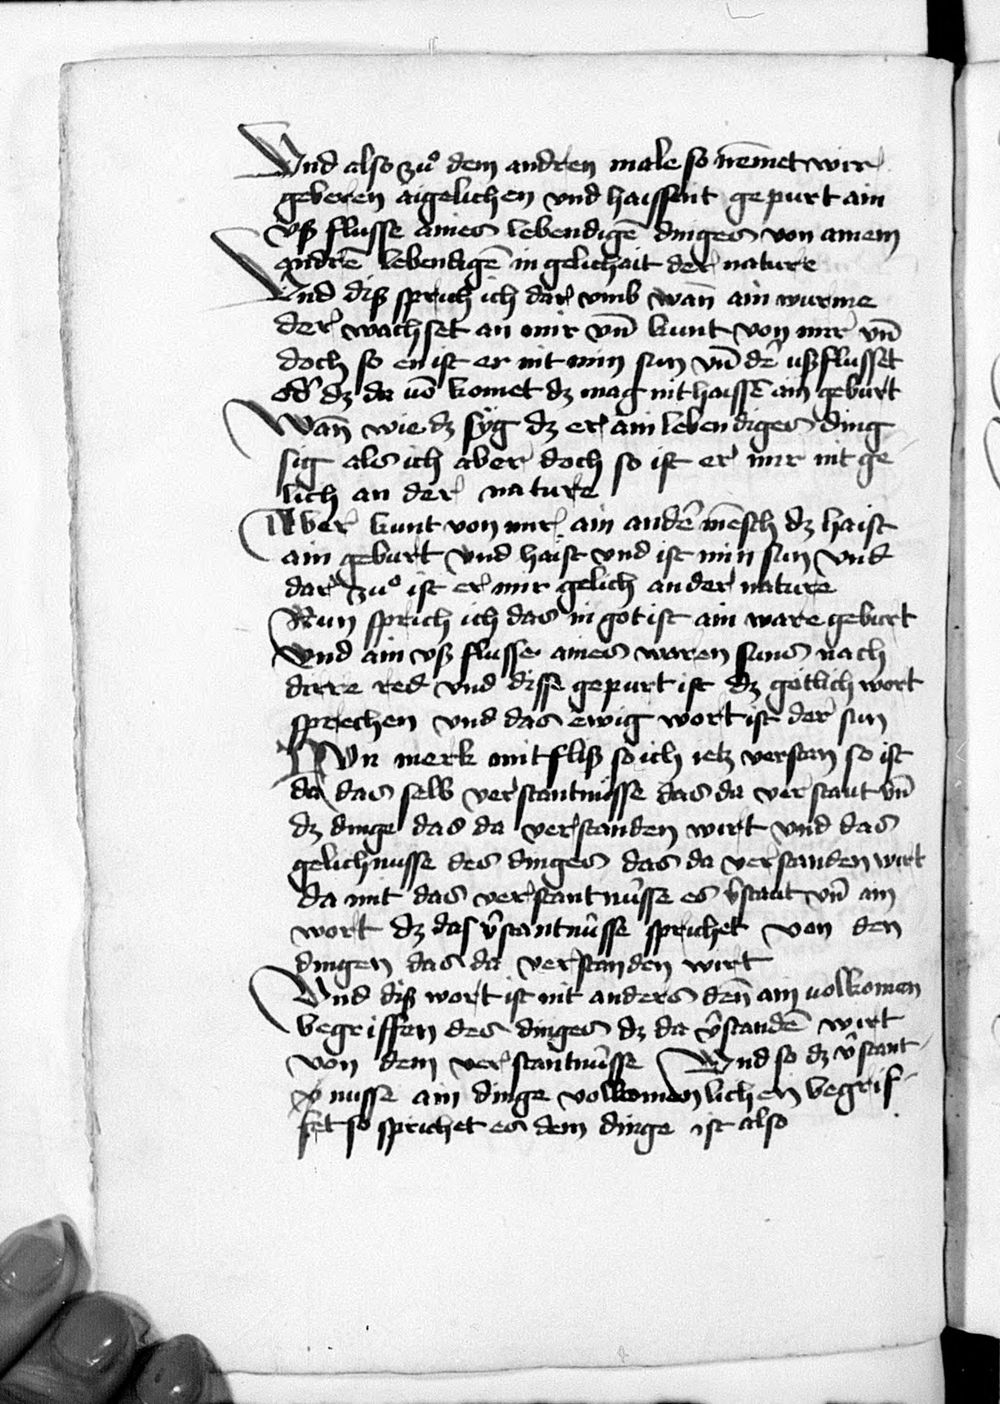 Vnd also zuͦ dem andren male so nēmet wir
geberen aigelichen vnd haissent gepurt ain
vß flusse aines lebendigē dinges von ainem
andrē lebendigē in gelichait der nature
Vnd diß sprich ich dar vmb wan̄ ain wurme
der wachset an mir vn̄ kunt von mir vn̄
doch so en ist er nit min sun vn̄ dē ußflusset
od̄ dz da uō komet dz mag nit haissē ain geburt
Wan̄ wie dz syg dz er ain lebendiges ding
sig als ich aber doch so ist er mir nit ge
lich an der nature
Aber kunt von mir ain andē mēsch dz haist
ain geburt vnd haist vnd ist min sun vnd
dar zuͦ ist er mir gelich an der nature
Nun sprich ich das in got ist ain ware geburt
vnd ain vß flusse aines waren suns nach
dirre red vnd disse gepurt ist dz götlich wort
sprechen vnd das ewig wort ist der sun
NVn merk mit fliß so ich ietz verstan so ist
da das selb verstantnüsse das da verstant vn̄
dz dinge das da verstanden wirt vnd das
gelichnusse des dinges das da verstanden wirt
da mit das verstantnüsse es v̄staut vn̄ ain
wort dz das v̄stantnüsse sprichet von den
dingen das da verstanden wirt
Vnd diß wort ist nit anders den̄ ain uolkomen
begriffen des dinges dz da v̄standē wirt
von dem verstantnüsse Vnd so dz v̄stant-
nusse ain dinge volkomenlichen begrif-
fet so sprichet es dem dinge ist also